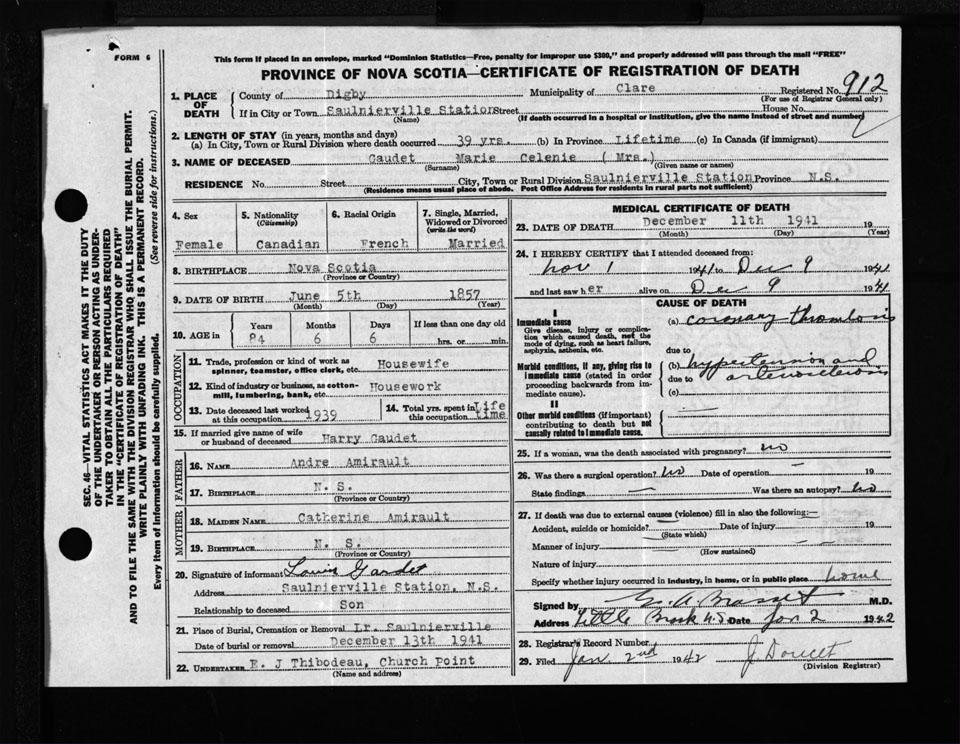 FORM 6
This form if placed in an envelope, marked "Dominion Statistics—Free, penalty for improper use $300," and properly addressed will pass through the mail "FREE"
PROVINCE OF NOVA SCOTIA—CERTIFICATE OF REGISTRATION OF DEATH
SEC. 46—VITAL STATISTICS ACT MAKES IT THE DUTY
OF THE UNDERTAKER OR PERSON ACTING AS UNDER-
TAKER TO OBTAIN ALL THE PARTICULARS REQUIRED
IN THE "CERTIFICATE OF REGISTRATION OF DEATH"
AND TO FILE THE SAME WITH THE DIVISION REGISTRAR WHO SHALL ISSUE THE BURIAL PERMIT.
WRITE PLAINLY WITH UNFADING INK. THIS IS A PERMANENT RECORD.
Every item of information should be carefully supplied. (See reverse side for instructions.)
1. PLACE OF DEATH County of Digby Municipality of Clare Registered No. 912
(For use of Registrar General only)
If in City or Town Saulnierville Station Street House No.
(Name) (If death occurred in a hospital or institution, give the name instead of street and number)
2. LENGTH OF STAY (in years, months and days)
(a) In City, Town or Rural Division where death occurred 39 yrs. (b) In Province Lifetime (c) In Canada (if immigrant)
3. NAME OF DECEASED Gaudet Marie Celenie (Mrs.)
(Surname) (Given name or names)
RESIDENCE No. Street City, Town or Rural Division Saulnierville Station Province N.S.
(Residence means usual place of abode. Post Office Address for residents in rural parts not sufficient)
4. Sex Female
5. Nationality (Citizenship) Canadian
6. Racial Origin French
7. Single, Married, Widowed or Divorced (write the word) Married
8. BIRTHPLACE Nova Scotia
(Province or Country)
9. DATE OF BIRTH June 5th 1857
(Month) (Day) (Year)
10. AGE in Years Months Days If less than one day old
84 6 6 hrs. or min.
OCCUPATION
11. Trade, profession or kind of work as spinner, teamster, office clerk, etc. Housewife
12. Kind of industry or business, as cotton-mill, lumbering, bank, etc. Housework
13. Date deceased last worked at this occupation 1939
14. Total yrs. spent in this occupation Life time
15. If married give name of wife or husband of deceased Harry Gaudet
FATHER
16. NAME Andre Amirault
17. BIRTHPLACE N. S.
(Province or Country)
MOTHER
18. MAIDEN NAME Catherine Amirault
19. BIRTHPLACE N. S.
(Province or Country)
20. Signature of informant Louis Gaudet
Address Saulnierville Station, N.S.
Relationship to deceased Son
21. Place of Burial, Cremation or Removal Lr. Saulnierville
Date of burial or removal December 13th 1941
22. UNDERTAKER E. J Thibodeau, Church Point
(Name and address)
MEDICAL CERTIFICATE OF DEATH
23. DATE OF DEATH December 11th 1941 19
(Month) (Day) (Year)
24. I HEREBY CERTIFY that I attended deceased from:
Nov 1 1941 to Dec 9 1941
and last saw her alive on Dec 9 1941
CAUSE OF DEATH
I
Immediate cause
Give disease, injury or complication which caused death, not the mode of dying, such as heart failure, asphyxia, asthenia, etc.
(a) coronary thrombosis
due to
Morbid conditions, if any, giving rise to immediate cause (stated in order proceeding backwards from immediate cause).
(b) hypertension and
due to arteriosclerosis
(c)
II
Other morbid conditions (if important) contributing to death but not causally related to immediate cause.
25. If a woman, was the death associated with pregnancy? no
26. Was there a surgical operation? No Date of operation — 19
State findings — Was there an autopsy? No
27. If death was due to external causes (violence) fill in also the following:—
Accident, suicide or homicide? — Date of injury — 19
(State which)
Manner of injury — —
(How sustained)
Nature of injury —
Specify whether injury occurred in industry, in home, or in public place home
Signed by Brasset M.D.
Address Little Brook N.S. Date Jan 2 1942
28. Registrar's Record Number
29. Filed Jan 2nd 1942 J. Doucet
(Division Registrar)